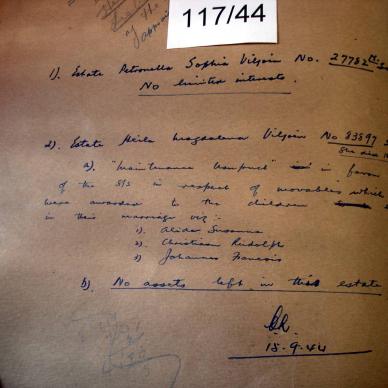 117/44
1). Estate Petronella Sophia Viljoen No. 27782
No limited interests.
2). Estate Heila Magdalena Viljoen No 83897
She died
a). "Maintenance Usufruct" in favour
of the S/S in respect of movables which
were awarded to the children
in their marriage viz:-
1). Alida Susanna
2). Christiaan Rudolph
3) Johannes Francois
b). No assets left in this estate
18.9.44